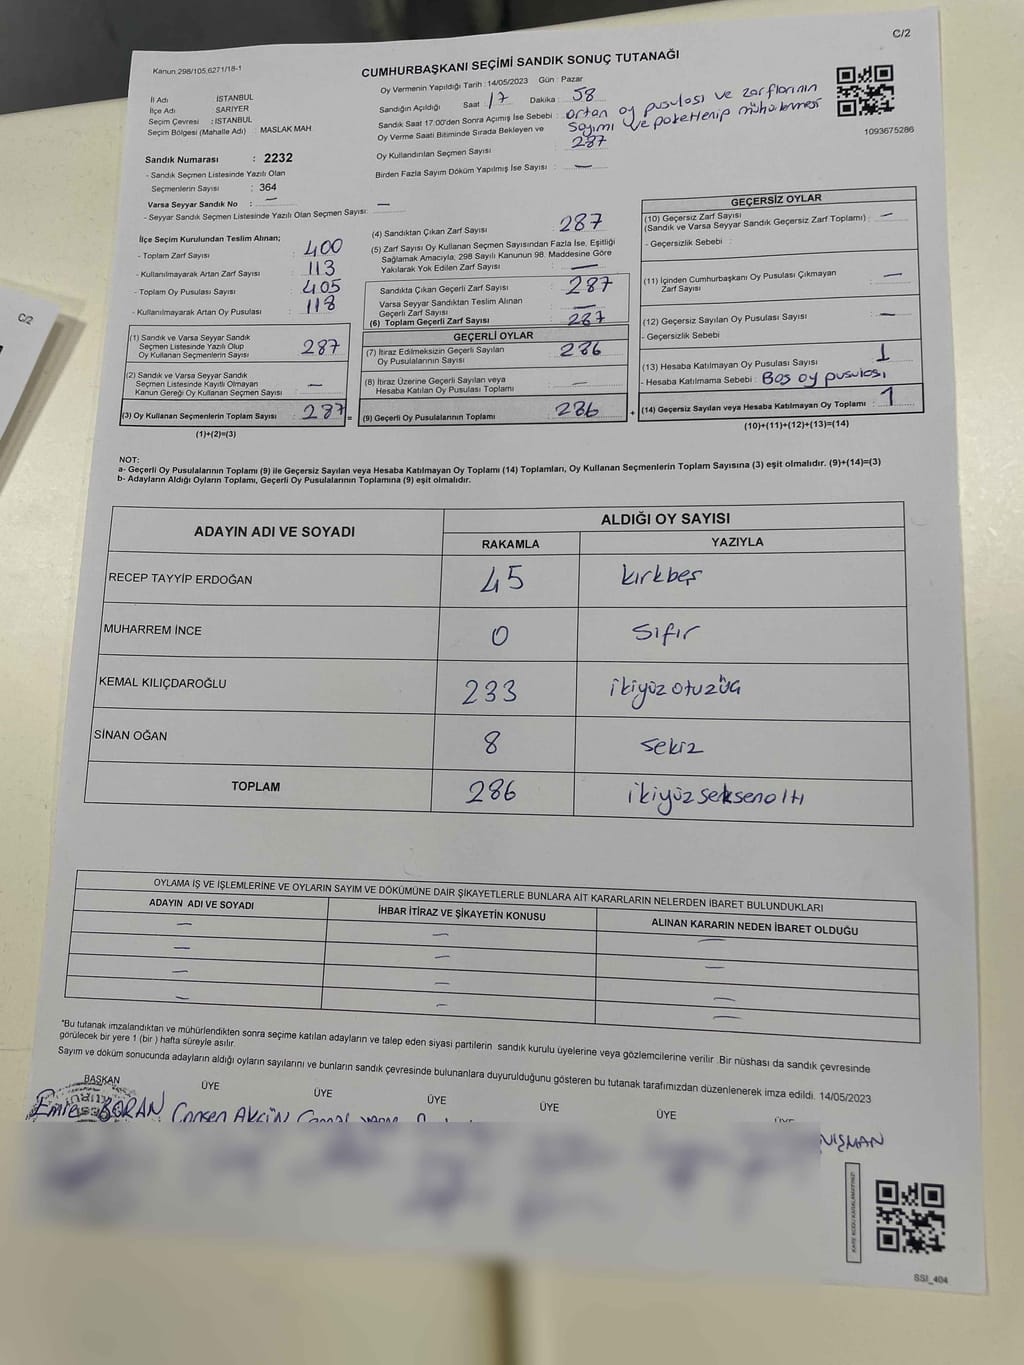 C/2
Kanun 298/105,6271/18-1
CUMHURBAŞKANI SEÇİMİ SANDIK SONUÇ TUTANAĞI
İl Adı İSTANBUL
İlçe Adı SARIYER
Seçim Çevresi : İSTANBUL
Seçim Bölgesi (Mahalle Adı) : MASLAK MAH
Sandık Numarası : 2232
- Sandık Seçmen Listesinde Yazılı Olan
Seçmenlerin Sayısı : 364
Varsa Seyyar Sandık No : —
- Seyyar Sandık Seçmen Listesinde Yazılı Olan Seçmen Sayısı: —
Oy Vermenin Yapıldığı Tarih : 14/05/2023 Gün : Pazar
Sandığın Açıldığı Saat : 17 Dakika : 58
Sandık Saat 17:00'den Sonra Açılmış İse Sebebi : artan oy pusulası ve zarflarının
sayımı ve paketlenip mühürlenmesi
Oy Verme Saati Bitiminde Sırada Bekleyen ve
Oy Kullandırılan Seçmen Sayısı : 287
Birden Fazla Sayım Döküm Yapılmış İse Sayısı : —
1093675286
İlçe Seçim Kurulundan Teslim Alınan;
- Toplam Zarf Sayısı : 400
- Kullanılmayarak Artan Zarf Sayısı : 113
- Toplam Oy Pusulası Sayısı : 405
- Kullanılmayarak Artan Oy Pusulası : 118
(1) Sandık ve Varsa Seyyar Sandık
Seçmen Listesinde Yazılı Olup
Oy Kullanan Seçmenlerin Sayısı : 287
(2) Sandık ve Varsa Seyyar Sandık
Seçmen Listesinde Kayıtlı Olmayan
Kanun Gereği Oy Kullanan Seçmen Sayısı : —
(3) Oy Kullanan Seçmenlerin Toplam Sayısı : 287 =
(1)+(2)=(3)
(4) Sandıktan Çıkan Zarf Sayısı : 287
(5) Zarf Sayısı Oy Kullanan Seçmen Sayısından Fazla İse, Eşitliği
Sağlamak Amacıyla, 298 Sayılı Kanunun 98. Maddesine Göre
Yakılarak Yok Edilen Zarf Sayısı : —
Sandıkta Çıkan Geçerli Zarf Sayısı : 287
Varsa Seyyar Sandıktan Teslim Alınan
Geçerli Zarf Sayısı : —
(6) Toplam Geçerli Zarf Sayısı : 287
GEÇERLİ OYLAR
(7) İtiraz Edilmeksizin Geçerli Sayılan
Oy Pusulalarının Sayısı : 286
(8) İtiraz Üzerine Geçerli Sayılan veya
Hesaba Katılan Oy Pusulası Toplamı : —
(9) Geçerli Oy Pusulalarının Toplamı : 286 +
GEÇERSİZ OYLAR
(10) Geçersiz Zarf Sayısı : —
(Sandık ve Varsa Seyyar Sandık Geçersiz Zarf Toplamı)
- Geçersizlik Sebebi :
(11) İçinden Cumhurbaşkanı Oy Pusulası Çıkmayan
Zarf Sayısı : —
(12) Geçersiz Sayılan Oy Pusulası Sayısı : —
- Geçersizlik Sebebi
(13) Hesaba Katılmayan Oy Pusulası Sayısı : 1
- Hesaba Katılmama Sebebi : Boş oy pusulası
(14) Geçersiz Sayılan veya Hesaba Katılmayan Oy Toplamı : 1
(10)+(11)+(12)+(13)=(14)
NOT:
a- Geçerli Oy Pusulalarının Toplamı (9) ile Geçersiz Sayılan veya Hesaba Katılmayan Oy Toplamı (14) Toplamları, Oy Kullanan Seçmenlerin Toplam Sayısına (3) eşit olmalıdır. (9)+(14)=(3)
b- Adayların Aldığı Oyların Toplamı, Geçerli Oy Pusulalarının Toplamına (9) eşit olmalıdır.
ADAYIN ADI VE SOYADI ALDIĞI OY SAYISI
RAKAMLA YAZIYLA
RECEP TAYYİP ERDOĞAN 45 kırkbeş
MUHARREM İNCE 0 Sıfır
KEMAL KILIÇDAROĞLU 233 ikiyüzotuzüç
SİNAN OĞAN 8 sekiz
TOPLAM 286 ikiyüzseksenaltı
OYLAMA İŞ VE İŞLEMLERİNE VE OYLARIN SAYIM VE DÖKÜMÜNE DAİR ŞİKAYETLERLE BUNLARA AİT KARARLARIN NELERDEN İBARET BULUNDUKLARI
ADAYIN ADI VE SOYADI İHBAR İTİRAZ VE ŞİKAYETİN KONUSU ALINAN KARARIN NEDEN İBARET OLDUĞU
— — —
— — —
— — —
— — —
*Bu tutanak imzalandıktan ve mühürlendikten sonra seçime katılan adayların ve talep eden siyasi partilerin sandık kurulu üyelerine veya gözlemcilerine verilir. Bir nüshası da sandık çevresinde
görülecek bir yere 1 (bir ) hafta süreyle asılır.
Sayım ve döküm sonucunda adayların aldığı oyların sayılarını ve bunların sandık çevresinde bulunanlara duyurulduğunu gösteren bu tutanak tarafımızdan düzenlenerek imza edildi. 14/05/2023
BAŞKAN ÜYE ÜYE ÜYE ÜYE ÜYE ÜYE
Emre BORAN Cansen AKGÜN
KARE KODU KARALAMAYINIZ!
SSI_404
C/2